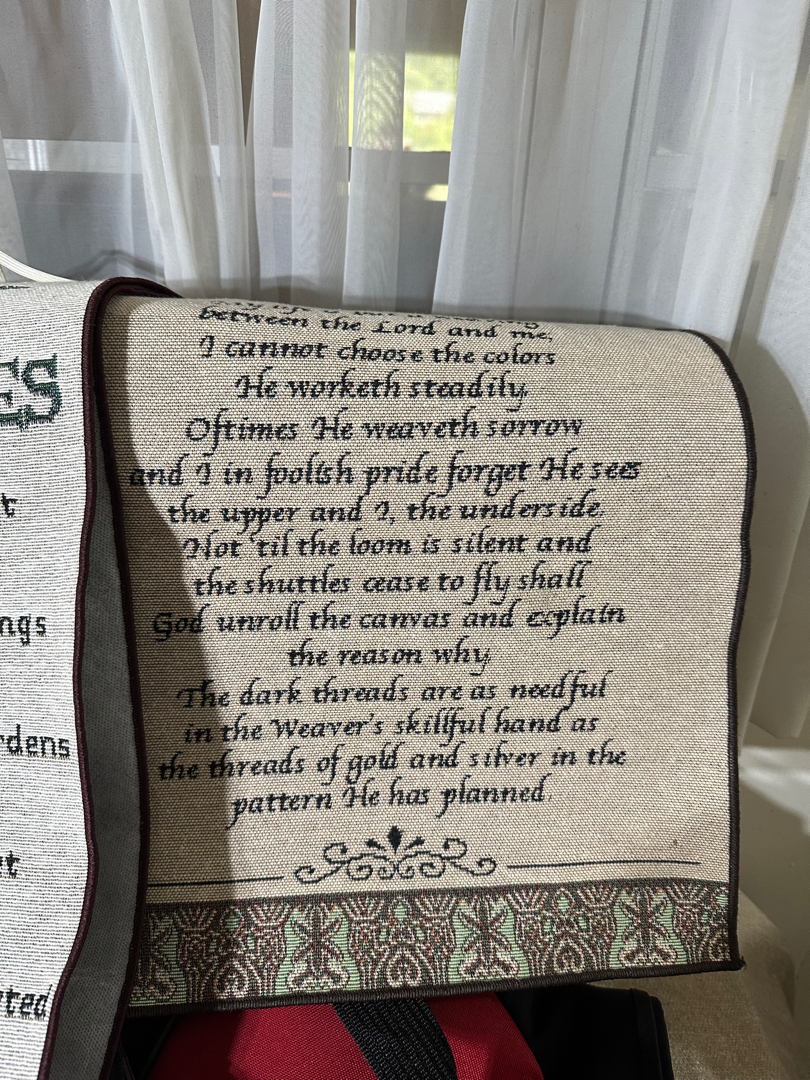 ES
t
ngs
rdens
t
ted
between the Lord and me,
I cannot choose the colors
He worketh steadily.
Oftimes He weaveth sorrow
and I in foolish pride forget He sees
the upper and I, the underside.
Not 'til the loom is silent and
the shuttles cease to fly shall
God unroll the canvas and explain
the reason why.
The dark threads are as needful
in the Weaver's skillful hand as
the threads of gold and silver in the
pattern He has planned.